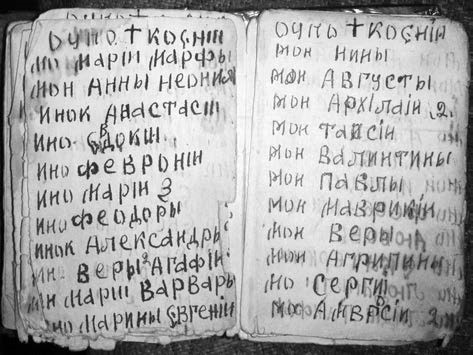 ОУПО + КОЄНІИ
МО МАРІИ МАРФЫ
МОН АННЫ НЕОНИЛ
ИНОК АНАСТАСІИ
ИНО ЄВДОКІИ
ИНО ФЕВРОНІИ
ИНО МАРІИ 3
ИНО ФЕОДОРЫ
ИНОК АЛЕКСАНДРЫ
ИНО ВЕРЫ 2 АГАФІИ
ИНО МАРІИ ВАРВАРЫ
ИНО МАРИНЫ ЄВГЕНІИ
ОУПО + КОЄНІИ
МОН НИНЫ
МОН АВГУСТЫ
МОН АРХІЛАІИ 2
МОН ТАИСІИ
МОН ВАЛИНТИНЫ
МОН ПАВЛЫ
МОН МАВРИКІИ
МОН ВЕРЫ
МОН АГРИПИНЫ
МО СЕРГІИ
МО АМВРСІИ 2